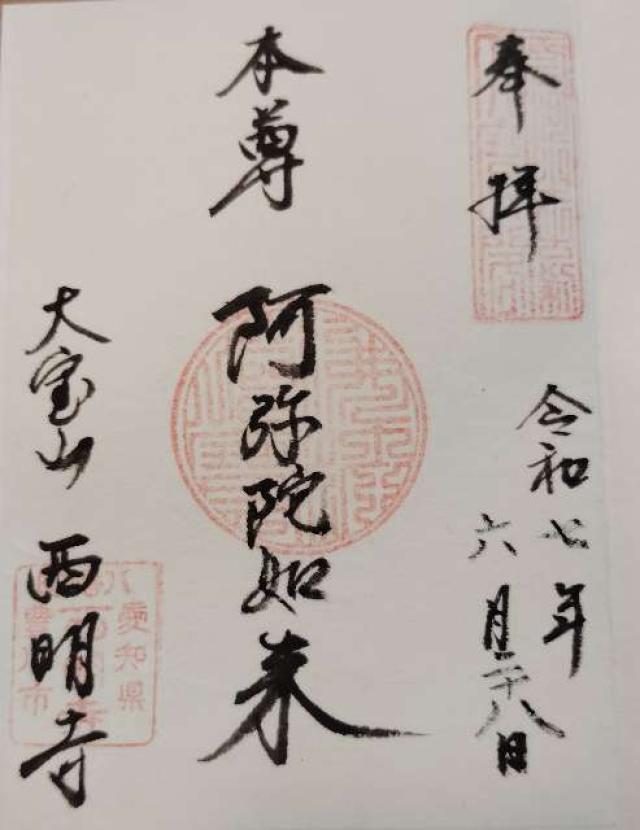 奉拝
令和七年
六月二十八日
本尊
阿弥陀如来
大宝山 西明寺
愛知県
豊川市